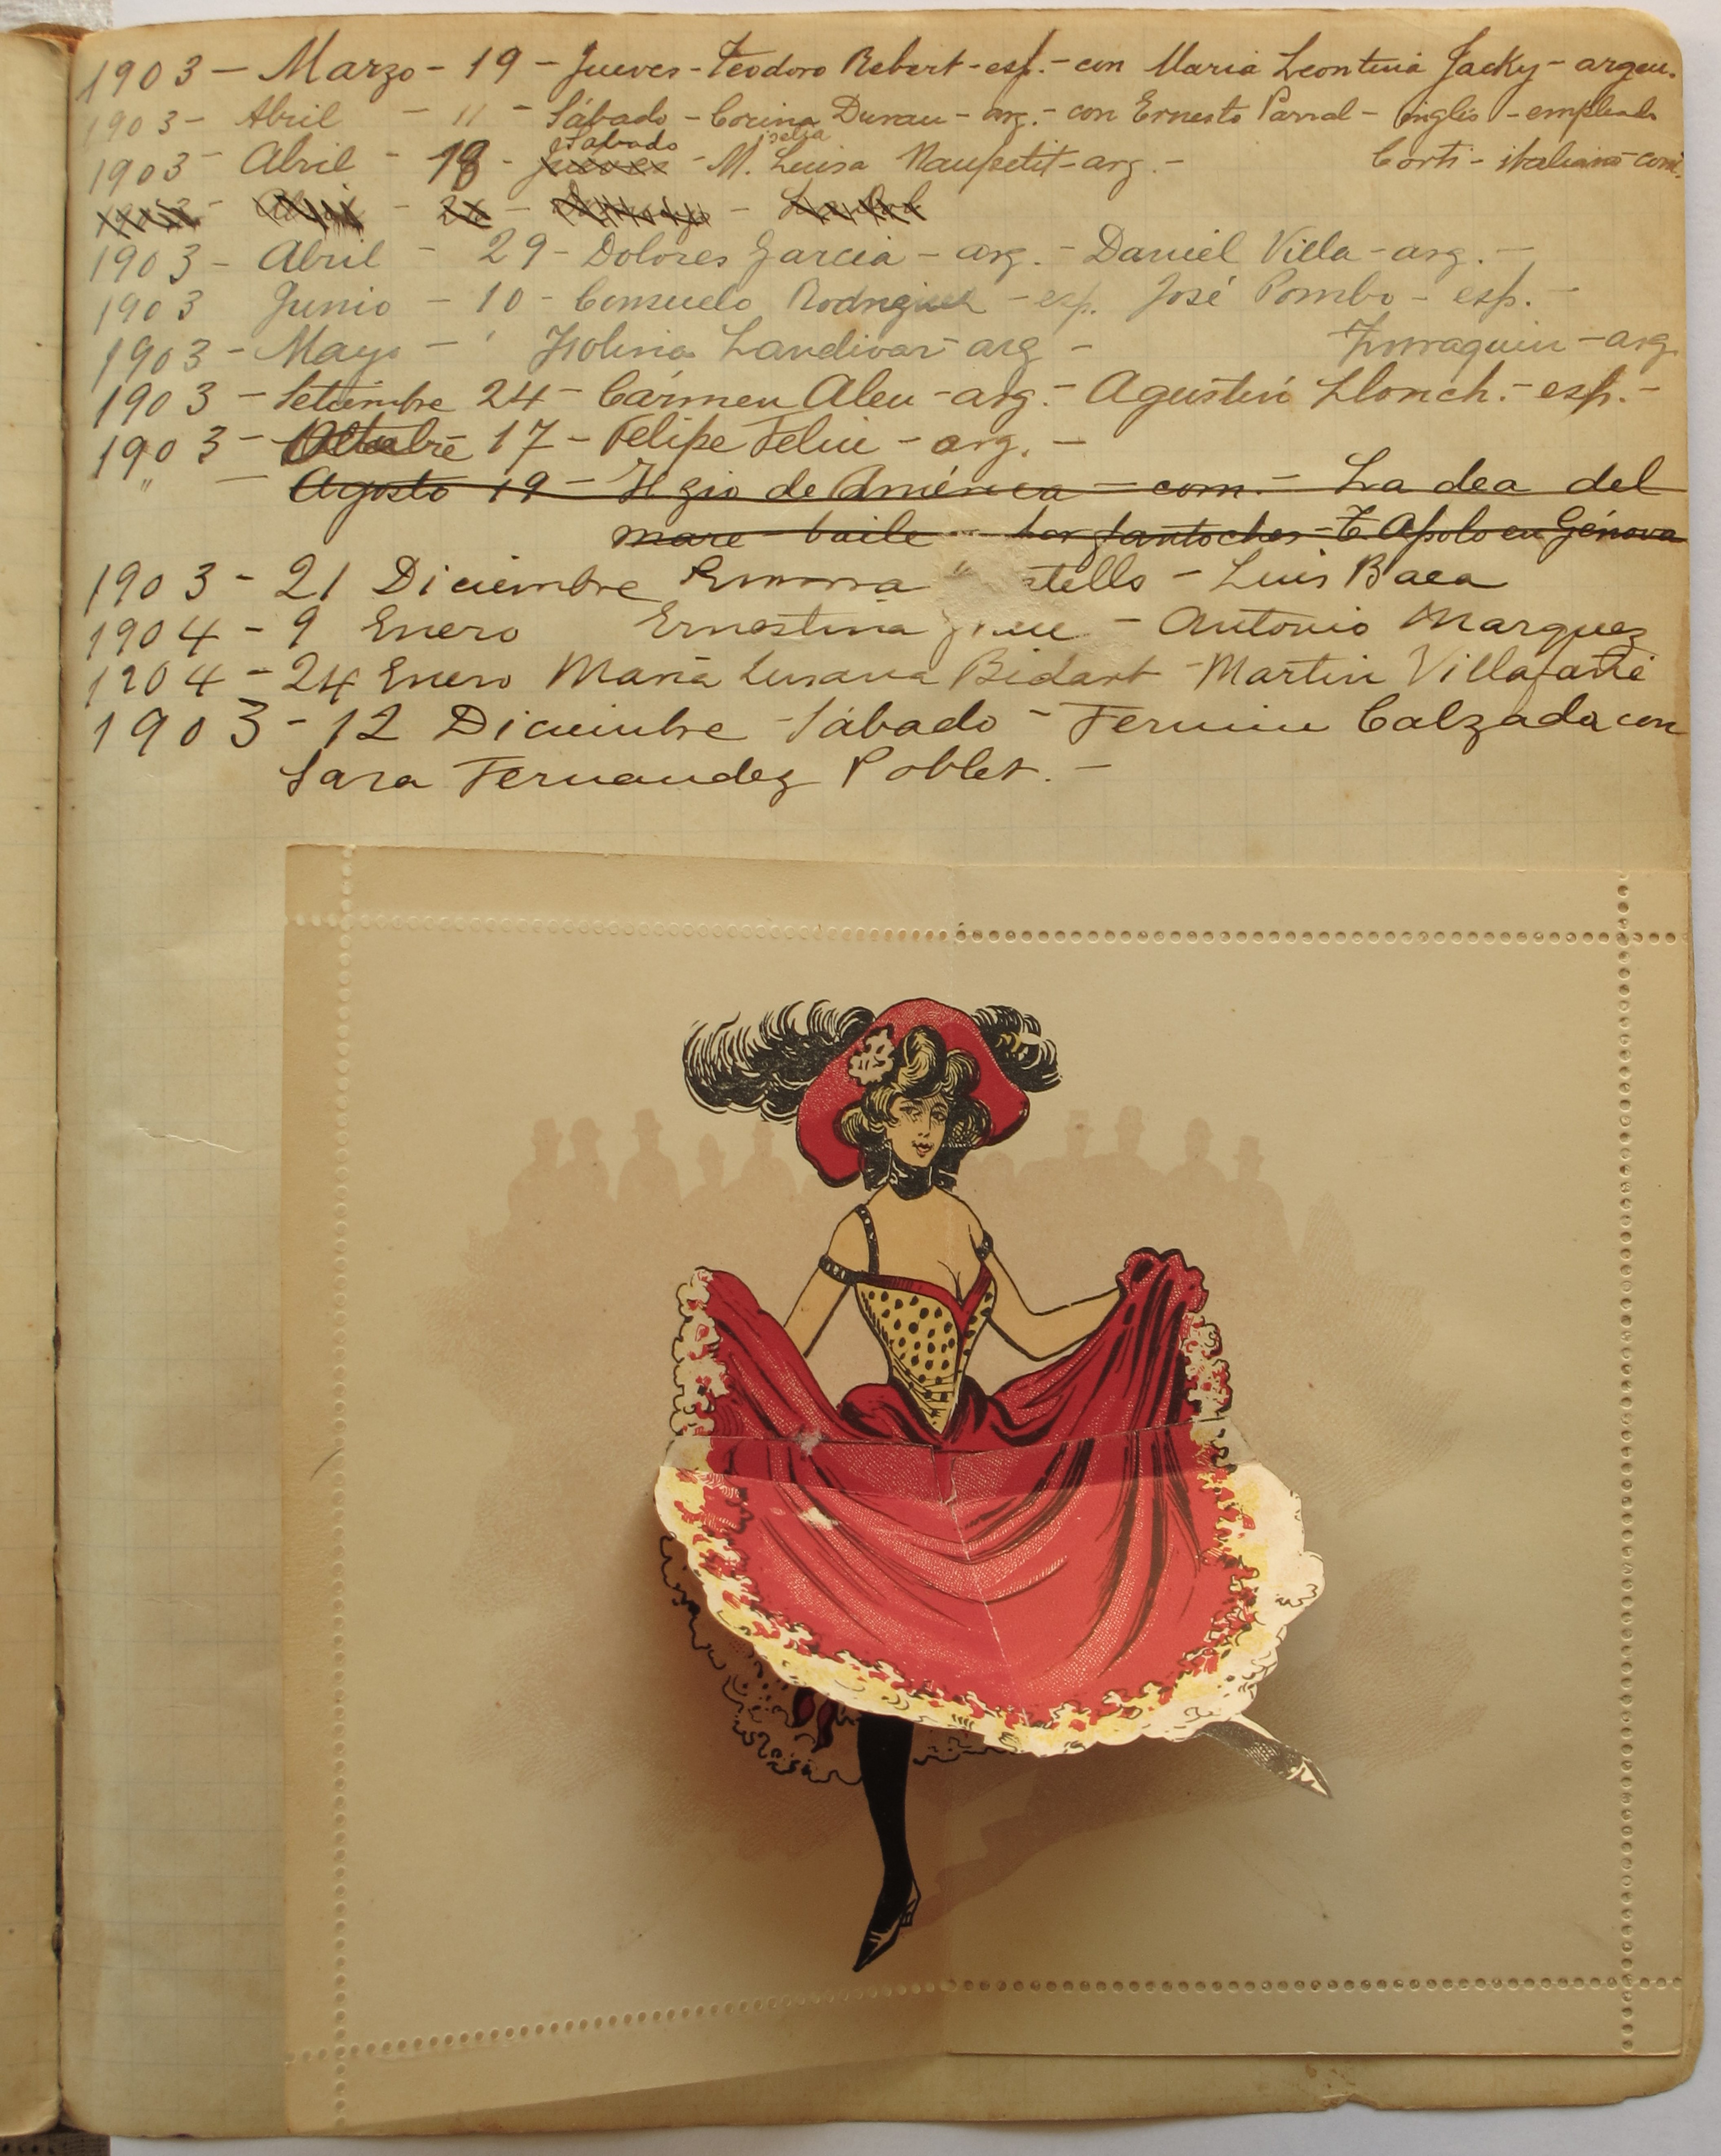 1903 - Marzo - 19 - Jueves - Teodoro Rebert - esp. - con Maria Leontina Jacky - argen.
1903 - Abril - 11 - Sábado - Corina Durau - arg. - con Ernesto Parral - inglés - empleado
Sabado
1903 - Abril - 18 - jueves - M. Luisa Naupetit - arg. - Corti - italiano - com.
1903 - Abril - 29 - Dolores Garcia - arg. - Daniel Villa - arg. -
1903 Junio - 10 - Consuelo Rodriguez - esp. José Pombo - esp. -
1903 - Mayo - Isolina Landivar - arg - Irurraquin - arg.
1903 - Setiembre 24 - Cármen Aleu - arg. - Agustín Llonch. - esp. -
1903 - Octubre 17 - Felipe Feliu - arg. -
" - Agosto 19 - Il zio de América - com. - La dea del
mare - baile - los fantoches - T. Apolo en Génova
1903 - 21 Diciembre Emma - Luis Baea
1904 - 9 Enero Ernestina - Antonio Marquez
1904 - 24 Enero María Susana Bidart - Martin Villafañe
1903 - 12 Diciembre - Sábado - Fermin Calzada con
Sara Fernandez Poblet. -